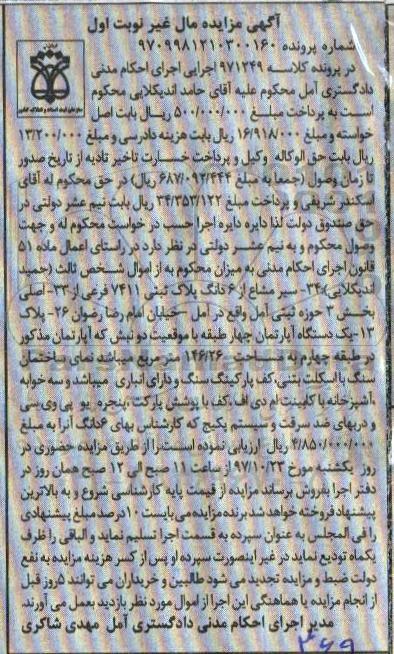 آگهی مزایده مال غیر نوبت اول
شماره پرونده ۹۷۰۹۹۸۱۲۱۰۳۰۰۱۶۰
در پرونده کلاسه ۹۷۱۲۴۹ اجرایی اجرای احکام مدنی
دادگستری آمل محکوم علیه آقای حامد اندیکلایی محکوم
است به پرداخت مبلغ ۵۰۰/۰۰۰/۰۰۰ ریال بابت اصل
خواسته و مبلغ ۱۶/۹۱۸/۰۰۰ ریال بابت هزینه دادرسی و مبلغ ۱۳/۲۰۰/۰۰۰
ریال بابت حق الوکاله وکیل و پرداخت خسارت تاخیر تادیه از تاریخ صدور
تا زمان وصول (جمعا به مبلغ ۶۸۷/۰۹۲/۴۴۴ ریال) در حق محکوم له آقای
اسکندر شریفی و پرداخت مبلغ ۳۴/۳۵۳/۱۲۲ ریال بابت نیم عشر دولتی در
حق صندوق دولت لذا دایره دایره اجرا حسب در خواست محکوم له و جهت
وصول محکوم و به نیم عشر دولتی در نظر دارد در راستای اعمال ماده ۵۱
قانون اجرای احکام مدنی به میزان محکوم به از اموال شخص ثالث (حمید
اندیکلایی): ۳۴- سیر مشاع از ۶ دانگ پلاک ثبتی ۷۴۱۱ فرعی از ۳۳- اصلی
بخش ۳ حوزه ثبتی آمل واقع در آمل -خیابان امام رضا رضوان ۲۶- پلاک
۱۳-یک دستگاه آپارتمان چهار طبقه با موقعیت دو نبش که آپارتمان مذکور
در طبقه چهارم به مساحت ۱۴۶/۲۶ متر مربع میباشد نمای ساختمان
سنگ با اسکلت بتنی، کف پارکینگ سنگ و دارای انباری میباشد و سه خوابه
،آشپزخانه با کابینت ام دی اف،کف با پوشش پارکت،پنجره یو پی وی سی
و دربهای ضد سرقت و سیستم پکیج که کارشناس بهای ۶دانگ آنرا به مبلغ
۴/۸۵۰/۰۰۰/۰۰۰ ریال ارزیابی نموده است،را از طریق مزایده حضوری در
روز یکشنبه مورخ ۹۷/۱۰/۲۳ از ساعت ۱۱ صبح الی ۱۲ صبح همان روز در
دفتر اجرا بفروش برساند مزایده از قیمت پایه کارشناسی شروع و به بالاترین
پیشنهاد فروخته خواهد شد،برنده مزایده می بایست ۱۰ درصد مبلغ پیشنهادی
را فی المجلس به عنوان سپرده به قسمت اجرا تسلیم نماید و الباقی را ظرف
یکماه تودیع نماید در غیر اینصورت سپرده او پس از کسر هزینه مزایده به نفع
دولت ضبط و مزایده تجدید می شود طالبین و خریداران می توانند ۵روز قبل
از انجام مزایده با هماهنگی این اجرا از اموال مورد نظر بازدید بعمل می آورند.
مدیر اجرای احکام مدنی دادگستری آمل مهدی شاکری